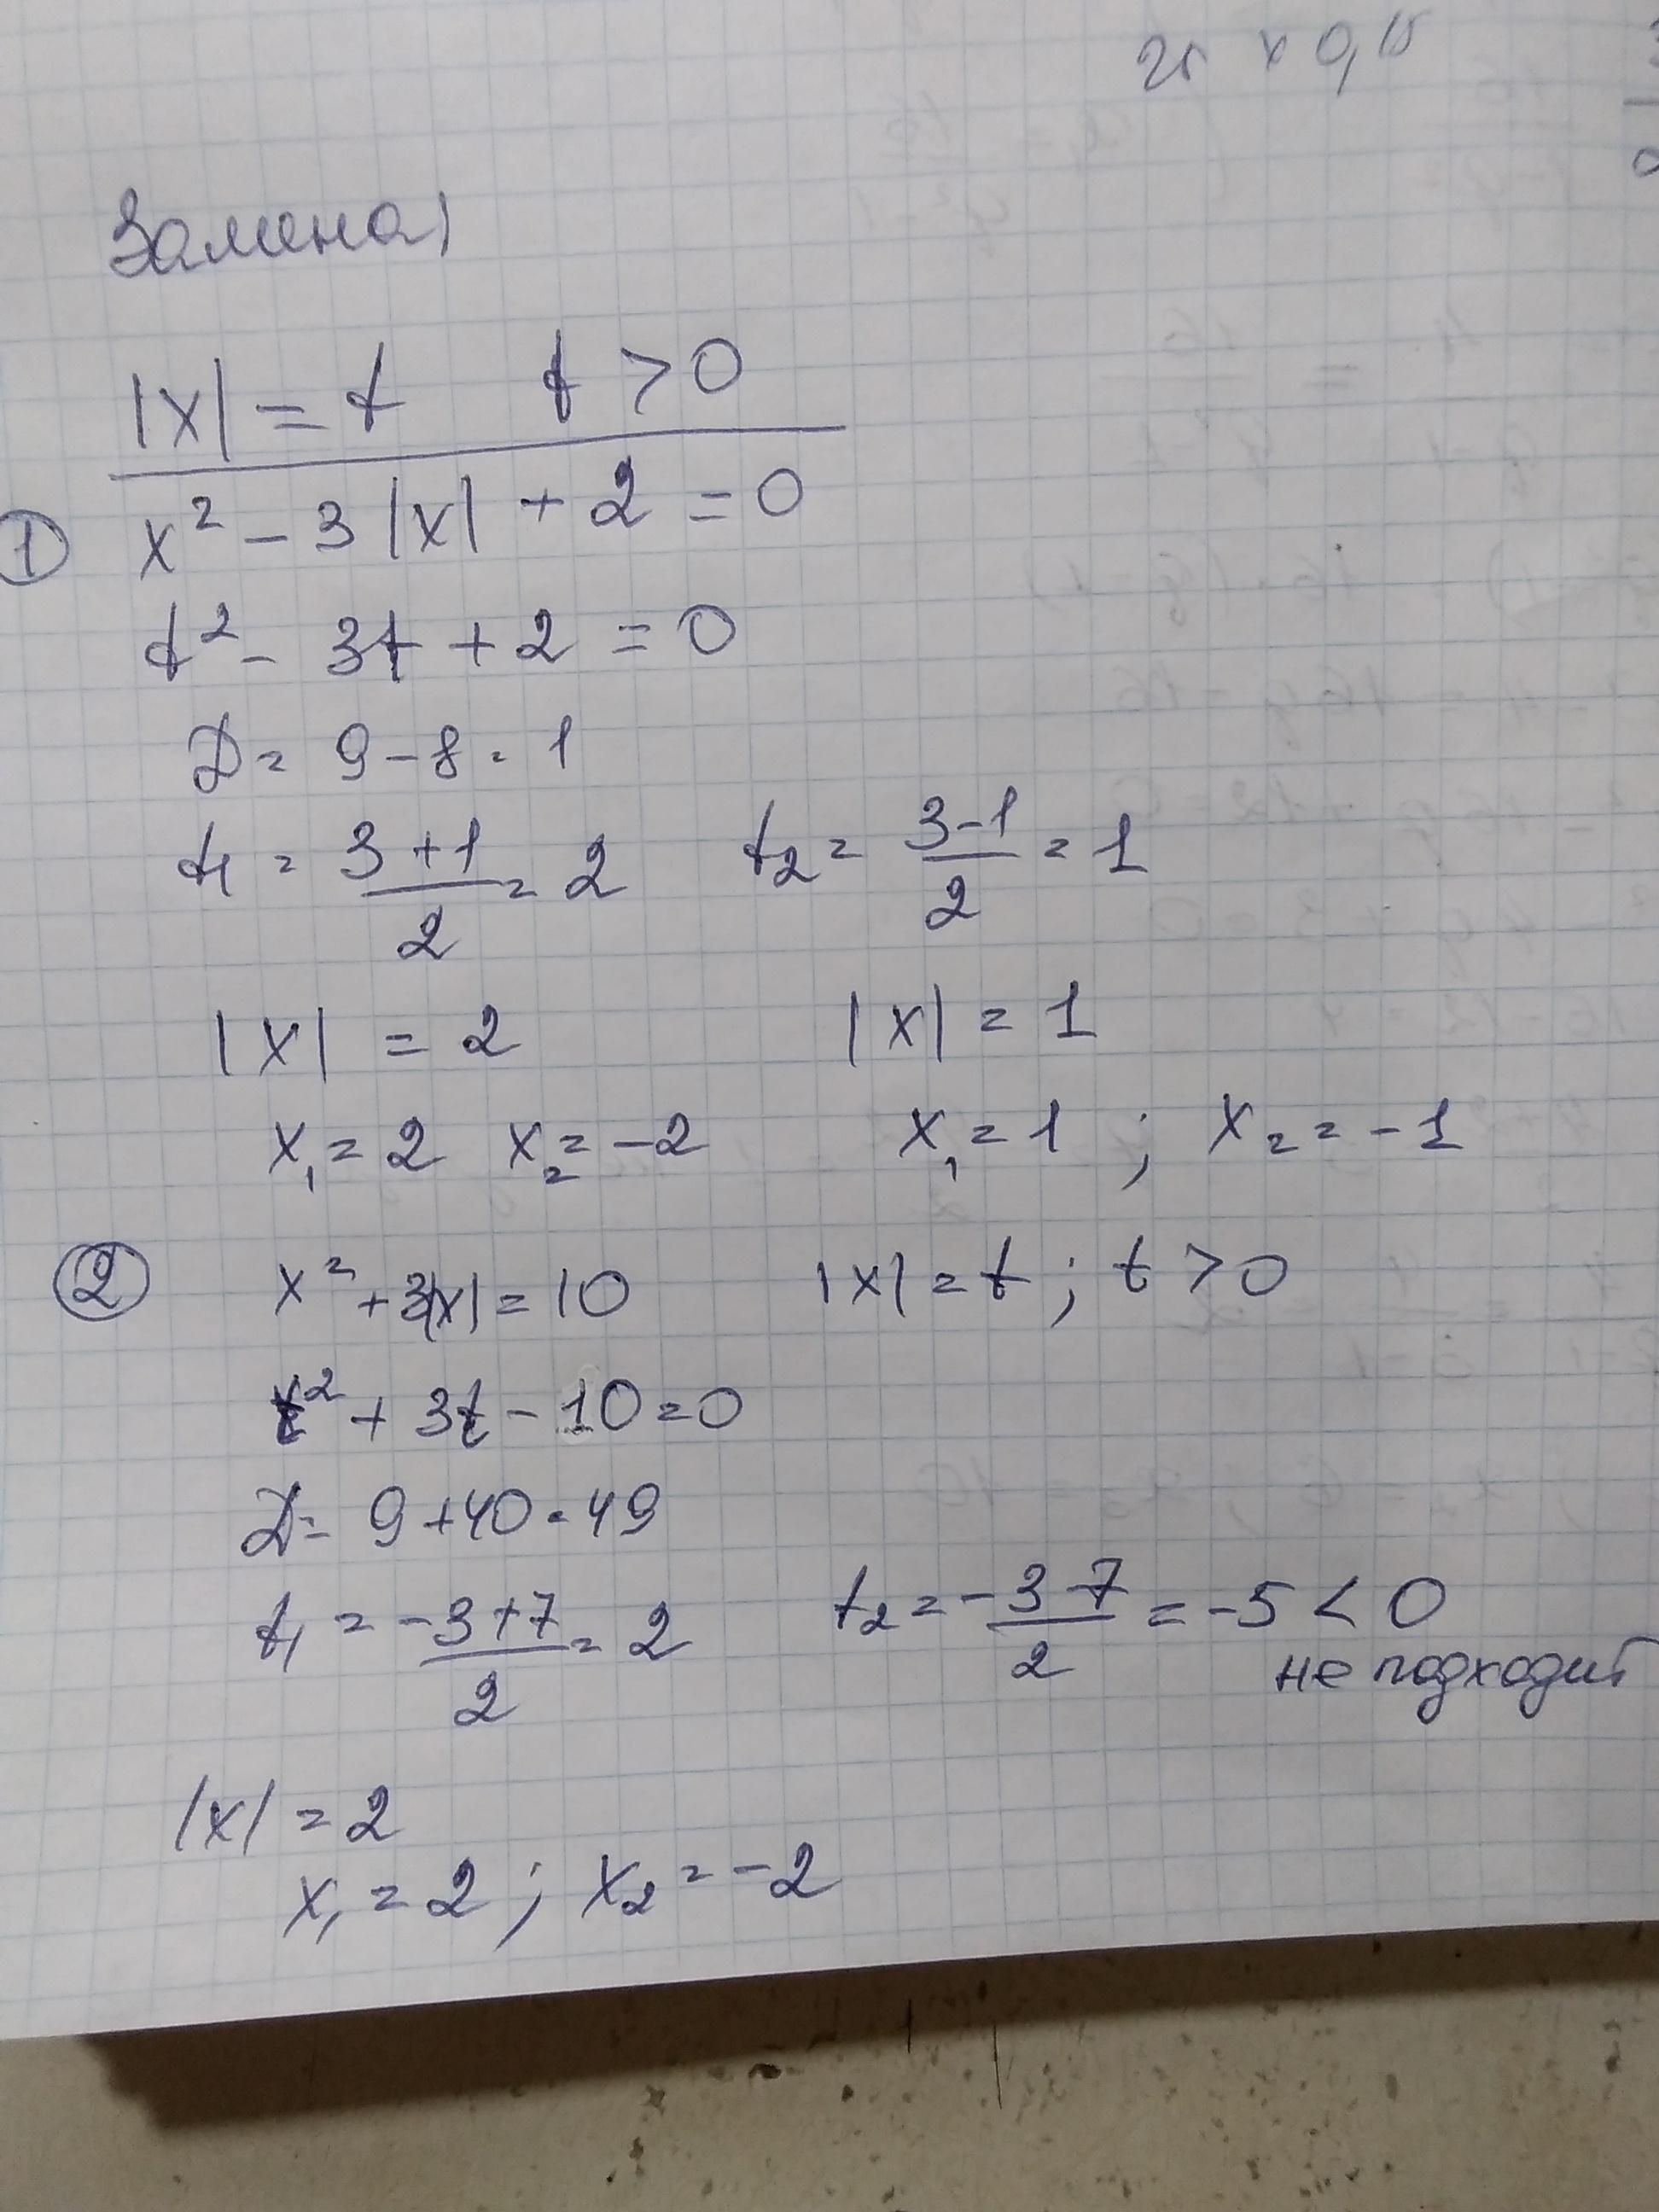 25 × 0,15
Замена,
|x| = t t > 0
① x² - 3|x| + 2 = 0
t² - 3t + 2 = 0
D = 9 - 8 = 1
t₁ = (3+1)/2 = 2 t₂ = (3-1)/2 = 1
|x| = 2 |x| = 1
x₁ = 2 x₂ = -2 x₁ = 1 ; x₂ = -1
② x² + 3|x| = 10 |x| = t ; t > 0
t² + 3t - 10 = 0
D = 9 + 40 = 49
t₁ = (-3+7)/2 = 2 t₂ = (-3-7)/2 = -5 < 0
не подходит
|x| = 2
x₁ = 2 ; x₂ = -2